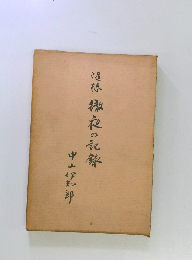 随縁
徹夜の記録
中山伊知郎